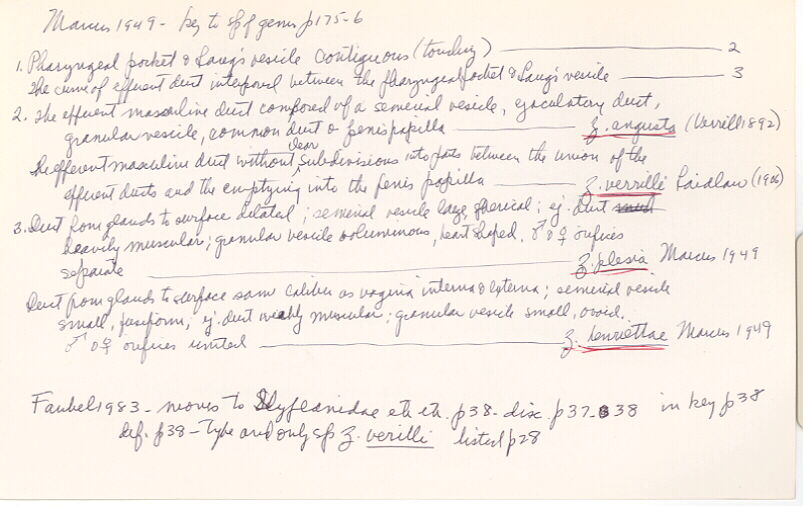 Marcus 1949 - key to spp of genus p175-6
1. Pharyngeal pocket & Lang's vesicle contiguous (touching) 2
The curve of efferent duct interposed between the pharyngeal pocket & Lang's vesicle 3
2. The efferent masculine duct composed of a semenal vesicle, ejaculatory duct,
granular vesicle, common duct & penis papilla Z. angusta (Verrill 1892)
clear
The efferent masculine duct without subdivisions into parts between the union of the
efferent ducts and the emptying into the penis papilla Z. verrilli Laidlaw (1906)
3. Duct from glands to surface dilated; semenal vesicle large, spherical; ej. duct
heavily muscular; granular vesicle voluminous, heart shaped. ♂ & ♀ orifices
separate Z. plesia Marcus 1949
Duct from glands to surface same caliber as vagina interna & externa; semenal vesicle
small, fusiform; ej. duct weakly muscular; granular vesicle small, ovoid.
♂ & ♀ orifices united Z. henriettae Marcus 1949
Faubel 1983 - moves to etc. p38 - disc. p37-38 in key p38
def. p38 - Type and only sp Z. verilli listed p28